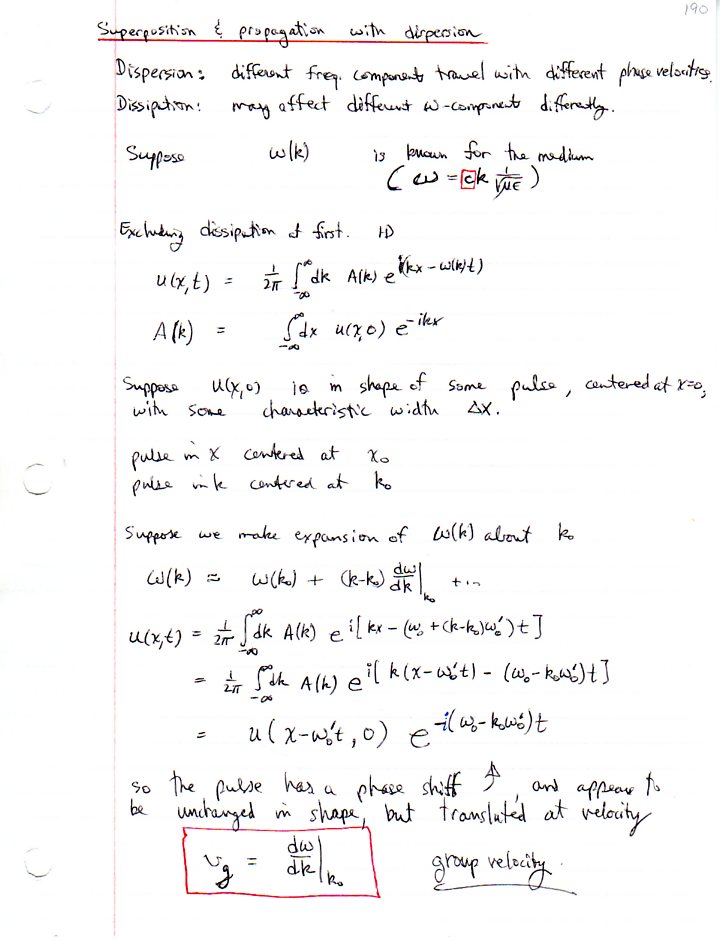 190
Superposition & propagation with dispersion
Dispersion: different freq. components travel with different phase velocities.
Dissipation: may affect different ω-components differently.
Suppose ω(k) is known for the medium
(ω = ck 1/√με)
Excluding dissipation at first. 1D
u(x,t) = 1/2π ∫_{-∞}^{∞} dk A(k) e^{i(kx - ω(k)t)}
A(k) = ∫_{-∞}^{∞} dx u(x,0) e^{-ikx}
Suppose u(x,0) is in shape of some pulse, centered at x=0,
with some characteristic width Δx.
pulse in x centered at x₀
pulse in k centered at k₀
Suppose we make expansion of ω(k) about k₀
ω(k) ≈ ω(k₀) + (k-k₀) dω/dk|_{k₀} + ...
u(x,t) = 1/2π ∫_{-∞}^{∞} dk A(k) e^{i[kx - (ω₀ + (k-k₀)ω₀')t]}
= 1/2π ∫_{-∞}^{∞} dk A(k) e^{i[k(x-ω₀'t) - (ω₀-k₀ω₀')t]}
= u(x-ω₀'t, 0) e^{-i(ω₀-k₀ω₀')t}
so the pulse has a phase shift ↑, and appears to
be unchanged in shape, but translated at velocity
v_g = dω/dk|_{k₀} group velocity.